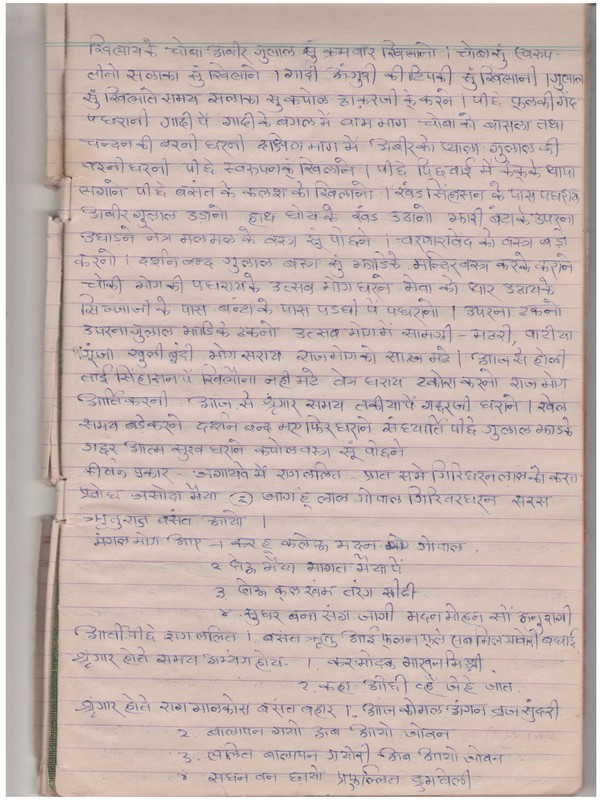 खिलायके चोवा अबीर गुलाल सुं क्रमवार खिलानो । चोवासुं स्वरूप
तीनो सलाका सुं खिलाने । गादी अंगुरी की टिपकी सुं खिलानी । गुलाल
सुं खिलाते समय सलाका सु कपोल ठाकुरजी कुं करने । पीछे फुलकी गेंद
पधरानी गादी पें गादी के बगल में वाम भाग चोवा को वासला तथा
चन्दन की बरनी धरनी दक्षिण भाग में अबीर को प्याला गुलाल की
बरनी धरनी पीछे स्वरूपनकुं खिलाने । पीछे पिछवाई में कुंकुके थापा
लगाने पीछे बसंत के कलश को खिलानो । खंड सिंहासन के पास पधराय
अबीर गुलाल उडानो हाथ धोय के खंड उठानो झारी बंटा के उपरना
उघाडने नेत्र मलमल के वस्त्र सुं पोछने । चरणारविंद को वस्त्र बडो
करनो । दर्शन बन्द गुलाल वस्त्र सुं झाडिके मन्दिरवस्त्र करके करीने
चोकी भोग की पधरायके उत्सव भोग धरने मेवा को थार उठायके
सिज्जाजी के पास बन्टा के पास पडघी पें पधरानो । उपरना ढकनो
उपरना गुलाल झाडिके ढकनो उत्सव भोगमें सामग्री - मठरी, वाटीया
गुंजा खुली बूंदी भोग सराय राजभोग को साज मंडे । आज से होली
तांई सिंहासन पें खिलौना नही मंडे वेत्र धराय टकोरा करनो राजभोग
आर्ति करनी आज से श्रृंगार समय तकीया पें गद्दरजी धराने । खेल
समय बडे करने दर्शन बन्द भए फिर धराने संध्यार्ति पीछे गुलाल झाडके
गद्दर आत्म सुख धराने कपोल वस्त्र सूं पोछने
कीर्तन प्रकार - जगायवे में राग ललित - प्रात समे गिरिधरन लाल को करत
प्रबोध जसोदा मैया २ जाग हूं लाल गोपाल गिरिवरधरन सरस
ऋतुराज बसंत आयो ।
मंगल भोग आए - १ कर हू कलेऊ मदन गोपाल .
२ दोऊ मैया मांगत मैया पें
३ दोऊ कूल खंभ तरंग सीढी
४ सुघर बना संग जागी मदन मोहन सों अनुरागी
आर्ती पीछे राग ललित १. बसंत ऋतु आई फूलन फूले सब मिल गावोरी बधाई
श्रृंगार होते समय अभ्यंग होय. १. कर मोदक माखन मिश्री
२. कहा ओछी व्हे जेहे जात.
श्रृंगार होते राग मालकोस बसंत बहार १. आज कोमल अंगन ब्रज सुंदरी
२ बालापन गयो अब आयो जोबन
३. ललित बालापन गयोरी अब आयो जोबन
४ सघन वन छायो प्रफुल्लित द्रुमवेली